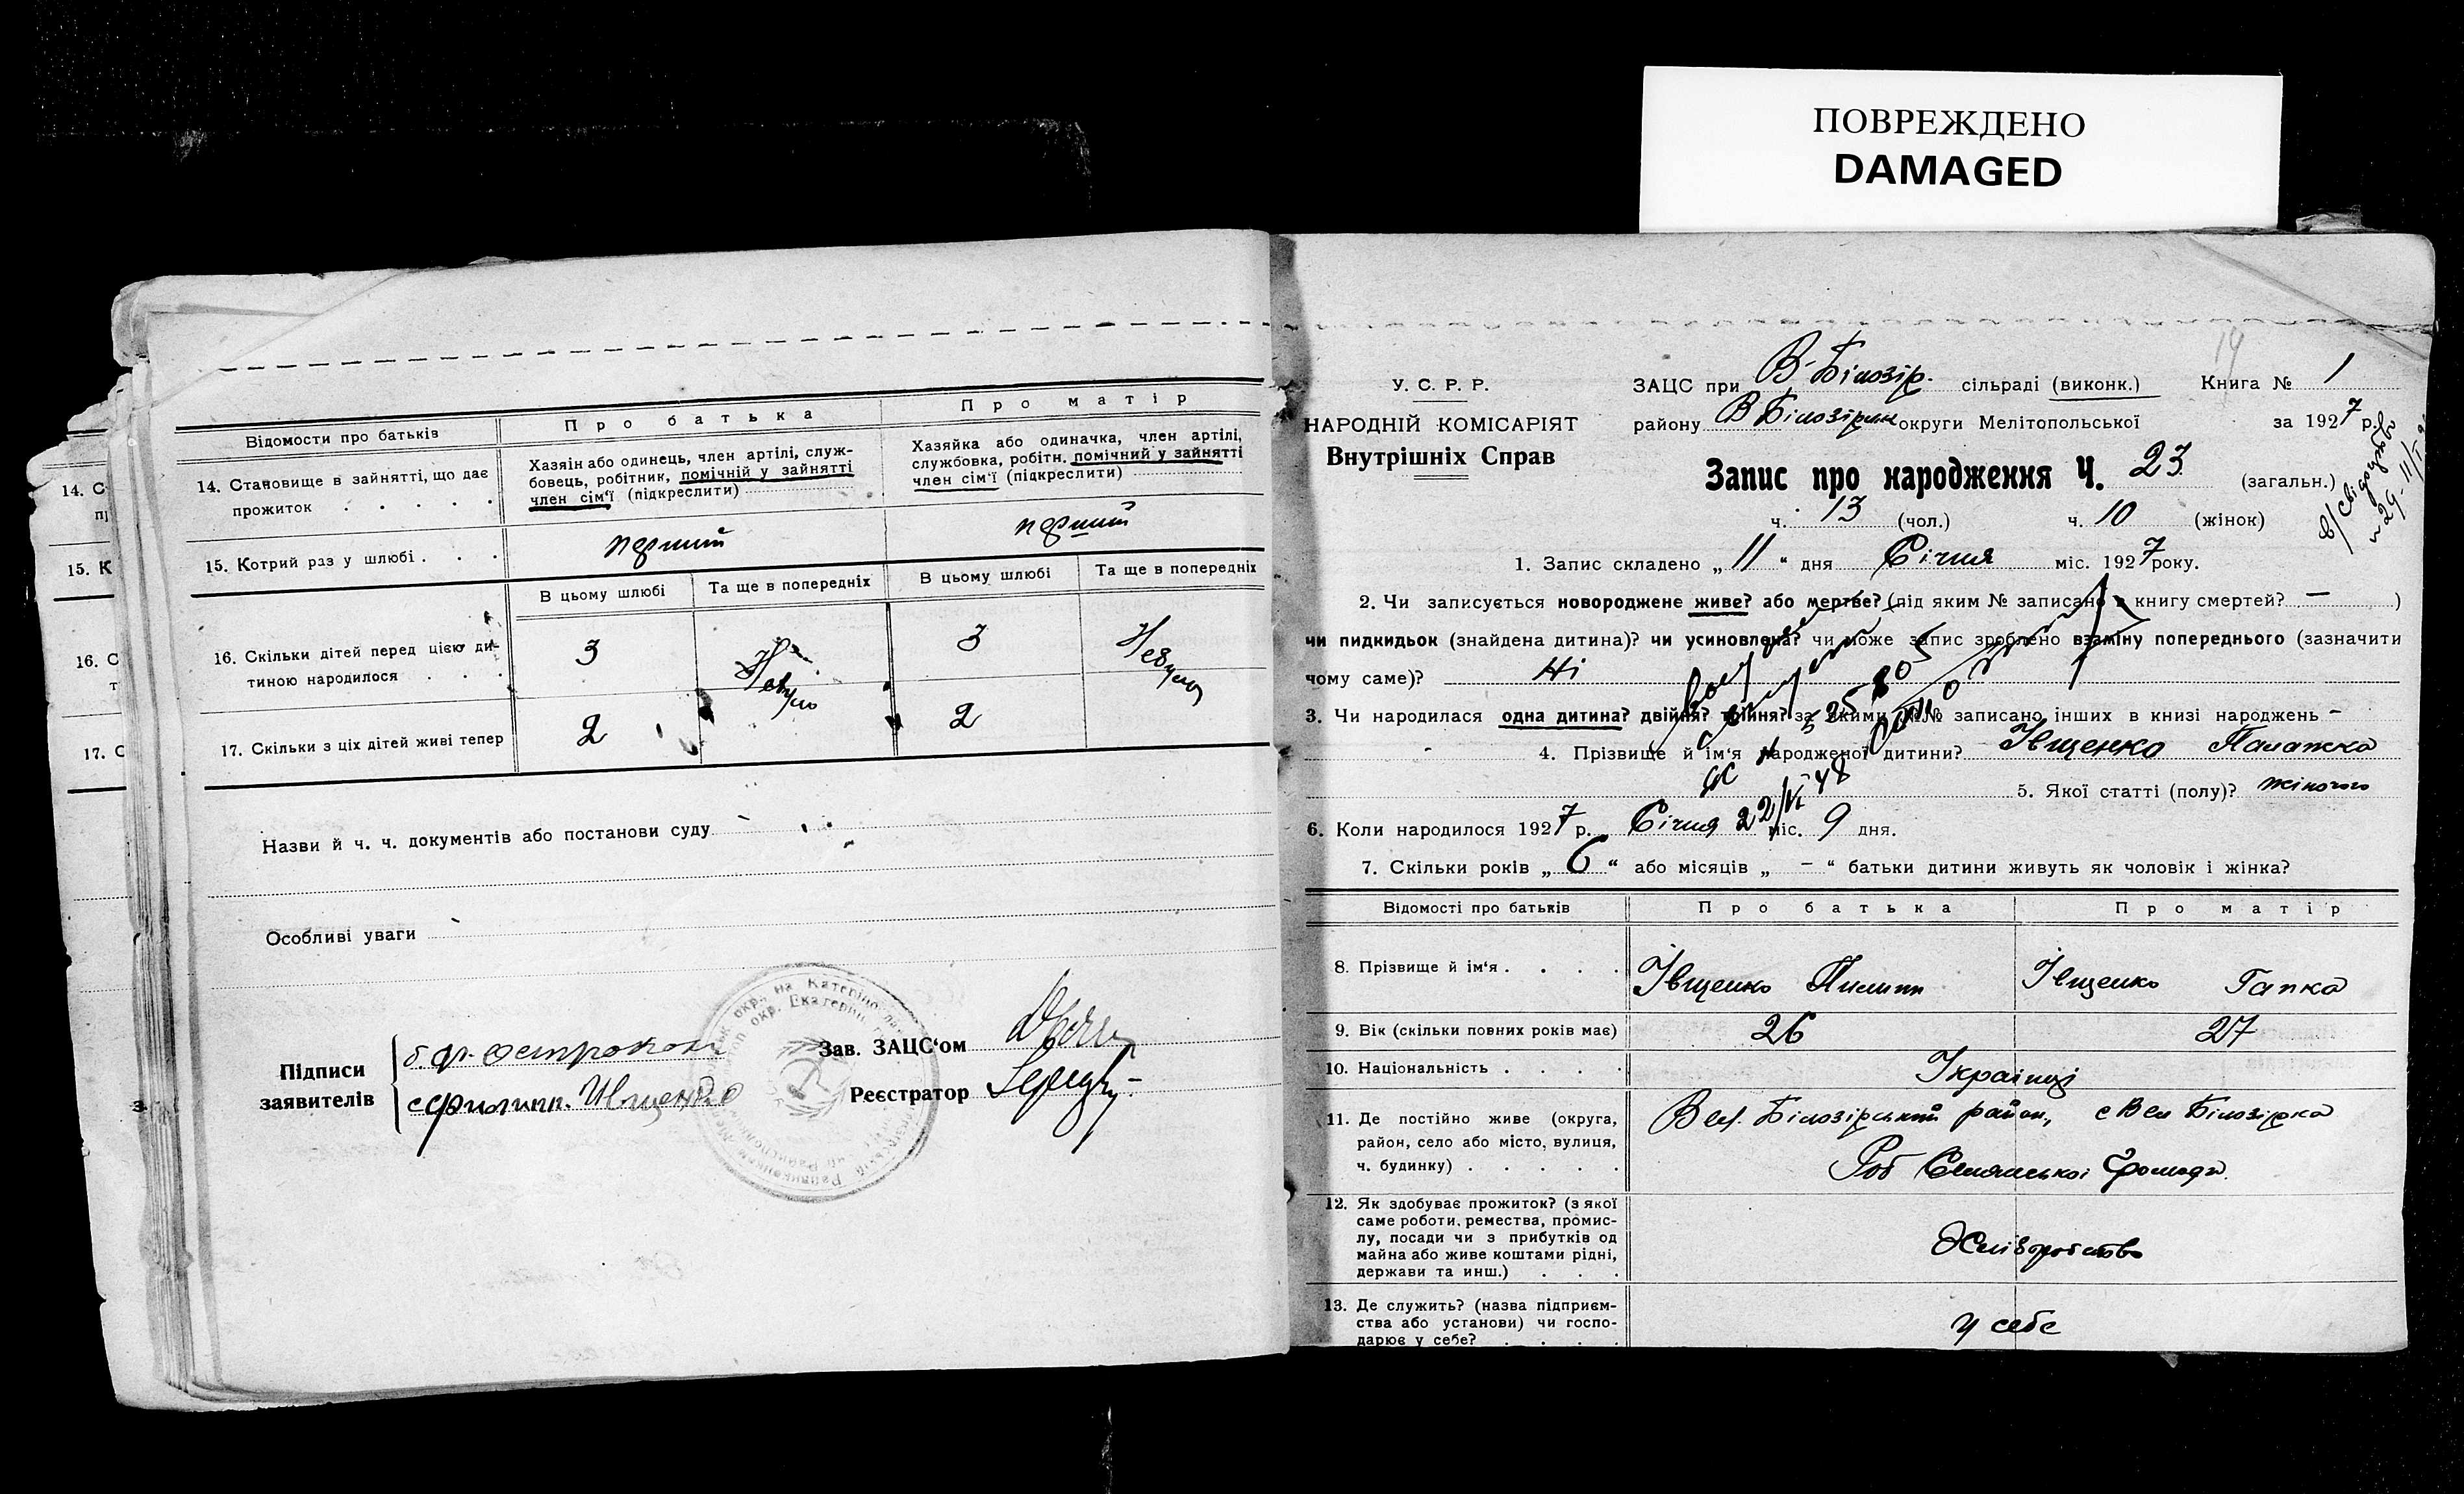 ПОВРЕЖДЕНО
DAMAGED
Відомости про батьків
Про батька
Про матір
14. Становище в зайнятті, що дає
прожиток . . . . .
Хазяін або одинець, член артілі, служ-
бовець, робітник, помічній у зайнятті
член сім'ї (підкреслити)
Хазяйка або одиначка, член артілі,
службовка, робітн. помічний у зайнятті
член сім'ї (підкреслити)
15. Котрий раз у шлюбі . . .
перший
перший
В цьому шлюбі
Та ще в попередніх
В цьому шлюбі
Та ще в попередніх
16. Скільки дітей перед цією ди-
тиною народилося . . .
3
Небуло
3
Небуло
17. Скільки з ціх дітей живі тепер
2
2
Назви й ч. ч. документів або постанови суду
Особливі уваги
Підписи
заявителів
Ивщенко
Зав. ЗАЦС'ом
Реєстратор
14. С
15. К
16. С
17. С
У. С. Р. Р.
НАРОДНІЙ КОМІСАРІЯТ
Внутрішніх Справ
14
ЗАЦС при В-Білозір. сільраді (виконк.) Книга № 1
району В Білозірик округи Мелітопольської за 1927 р.
Запис про народження Ч. 23 (загальн.)
ч. 13 (чол.) ч. 10 (жінок)
1. Запис складено „11“ дня Січня міс. 1927 року.
2. Чи записується новороджене живе? або мертве? (під яким № записано в книгу смертей? — )
чи пидкидьок (знайдена дитина)? чи усиновлена? чи може запис зроблено взаміну попереднього (зазначити
чому саме)? Ні
3. Чи народилася одна дитина? двійня? трійня? за якими №№ записано інших в книзі народжень —
4. Прізвище й ім'я народженої дитини? Івщенко Палажка
5. Якої статті (полу)? жіночого
22/VI 48
6. Коли народилося 1927 р. Січня міс. 9 дня.
7. Скільки років „6“ або місяців „—“ батьки дитини живуть як чоловік і жінка?
Відомості про батьків
Про батька
Про матір
8. Прізвище й ім'я . . . .
Івщенко Пилип
Івщенко Гапка
9. Вік (скільки повних років має)
26
27
10. Національність . . . .
Українці
11. Де постійно живе (округа,
район, село або місто, вулиця,
ч. будинку) . . . . .
Вел. Білозірський район, с Вел Білозірка
Селянської Громади
12. Як здобуває прожиток? (з якої
саме роботи, ремества, промис-
лу, посади чи з прибутків од
майна або живе коштами рідні,
держави та инш.) . . .
Хліборобство
13. Де служить? (назва підприєм-
ства або установи) чи госпо-
дарює у себе? . . . .
у себе